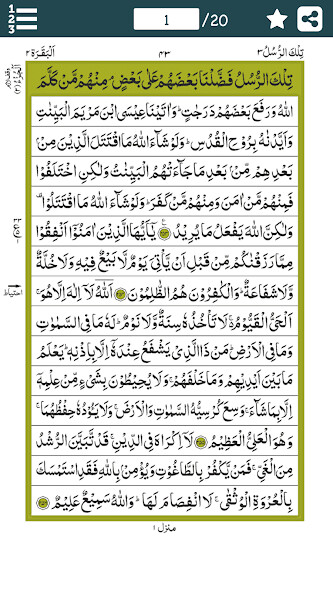 1 2 3
1 /20
تِلْكَ الرُّسُلُ ٣
٤٣
اَلْبَقَرَة ٢
تِلْكَ الرُّسُلُ فَضَّلْنَا بَعْضَهُمْ عَلٰى بَعْضٍ ۘ مِنْهُمْ مَّنْ كَلَّمَ
اللّٰهُ وَرَفَعَ بَعْضَهُمْ دَرَجٰتٍ ؕ وَاٰتَيْنَا عِيْسَى ابْنَ مَرْيَمَ الْبَيِّنٰتِ
وَاَيَّدْنٰهُ بِرُوْحِ الْقُدُسِ ؕ وَلَوْ شَآءَ اللّٰهُ مَا اقْتَتَلَ الَّذِيْنَ مِنْۢ
بَعْدِهِمْ مِّنْۢ بَعْدِ مَا جَآءَتْهُمُ الْبَيِّنٰتُ وَلٰكِنِ اخْتَلَفُوْا
فَمِنْهُمْ مَّنْ اٰمَنَ وَمِنْهُمْ مَّنْ كَفَرَ ؕ وَلَوْ شَآءَ اللّٰهُ مَا اقْتَتَلُوْا ۫
وَلٰكِنَّ اللّٰهَ يَفْعَلُ مَا يُرِيْدُ يٰۤاَيُّهَا الَّذِيْنَ اٰمَنُوْۤا اَنْفِقُوْا
مِمَّا رَزَقْنٰكُمْ مِّنْ قَبْلِ اَنْ يَّاْتِيَ يَوْمٌ لَّا بَيْعٌ فِيْهِ وَلَا خُلَّةٌ
وَّلَا شَفَاعَةٌ ؕ وَالْكٰفِرُوْنَ هُمُ الظّٰلِمُوْنَ اَللّٰهُ لَاۤ اِلٰهَ اِلَّا هُوَ ۚ
اَلْحَيُّ الْقَيُّوْمُ ۚ لَا تَاْخُذُهٗ سِنَةٌ وَّلَا نَوْمٌ ؕ لَهٗ مَا فِي السَّمٰوٰتِ
وَمَا فِي الْاَرْضِ ؕ مَنْ ذَا الَّذِيْ يَشْفَعُ عِنْدَهٗۤ اِلَّا بِاِذْنِهٖ ؕ يَعْلَمُ
مَا بَيْنَ اَيْدِيْهِمْ وَمَا خَلْفَهُمْ ۚ وَلَا يُحِيْطُوْنَ بِشَيْءٍ مِّنْ عِلْمِهٖۤ
اِلَّا بِمَا شَآءَ ۚ وَسِعَ كُرْسِيُّهُ السَّمٰوٰتِ وَالْاَرْضَ ۚ وَلَا يَـُٔوْدُهٗ حِفْظُهُمَا ۚ
وَهُوَ الْعَلِيُّ الْعَظِيْمُ لَاۤ اِكْرَاهَ فِي الدِّيْنِ ۙ قَدْ تَّبَيَّنَ الرُّشْدُ
مِنَ الْغَيِّ ۚ فَمَنْ يَّكْفُرْ بِالطَّاغُوْتِ وَيُؤْمِنْۢ بِاللّٰهِ فَقَدِ اسْتَمْسَكَ
بِالْعُرْوَةِ الْوُثْقٰى ۗ لَا انْفِصَامَ لَهَا ؕ وَاللّٰهُ سَمِيْعٌ عَلِيْمٌ
منزل ١